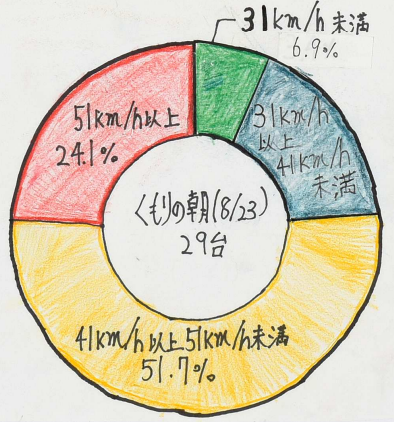 31km/h未満
6.9%
31km/h
以上
41km/h
未満
51km/h以上
24.1%
くもりの朝(8/23)
29台
41km/h以上51km/h未満
51.7%